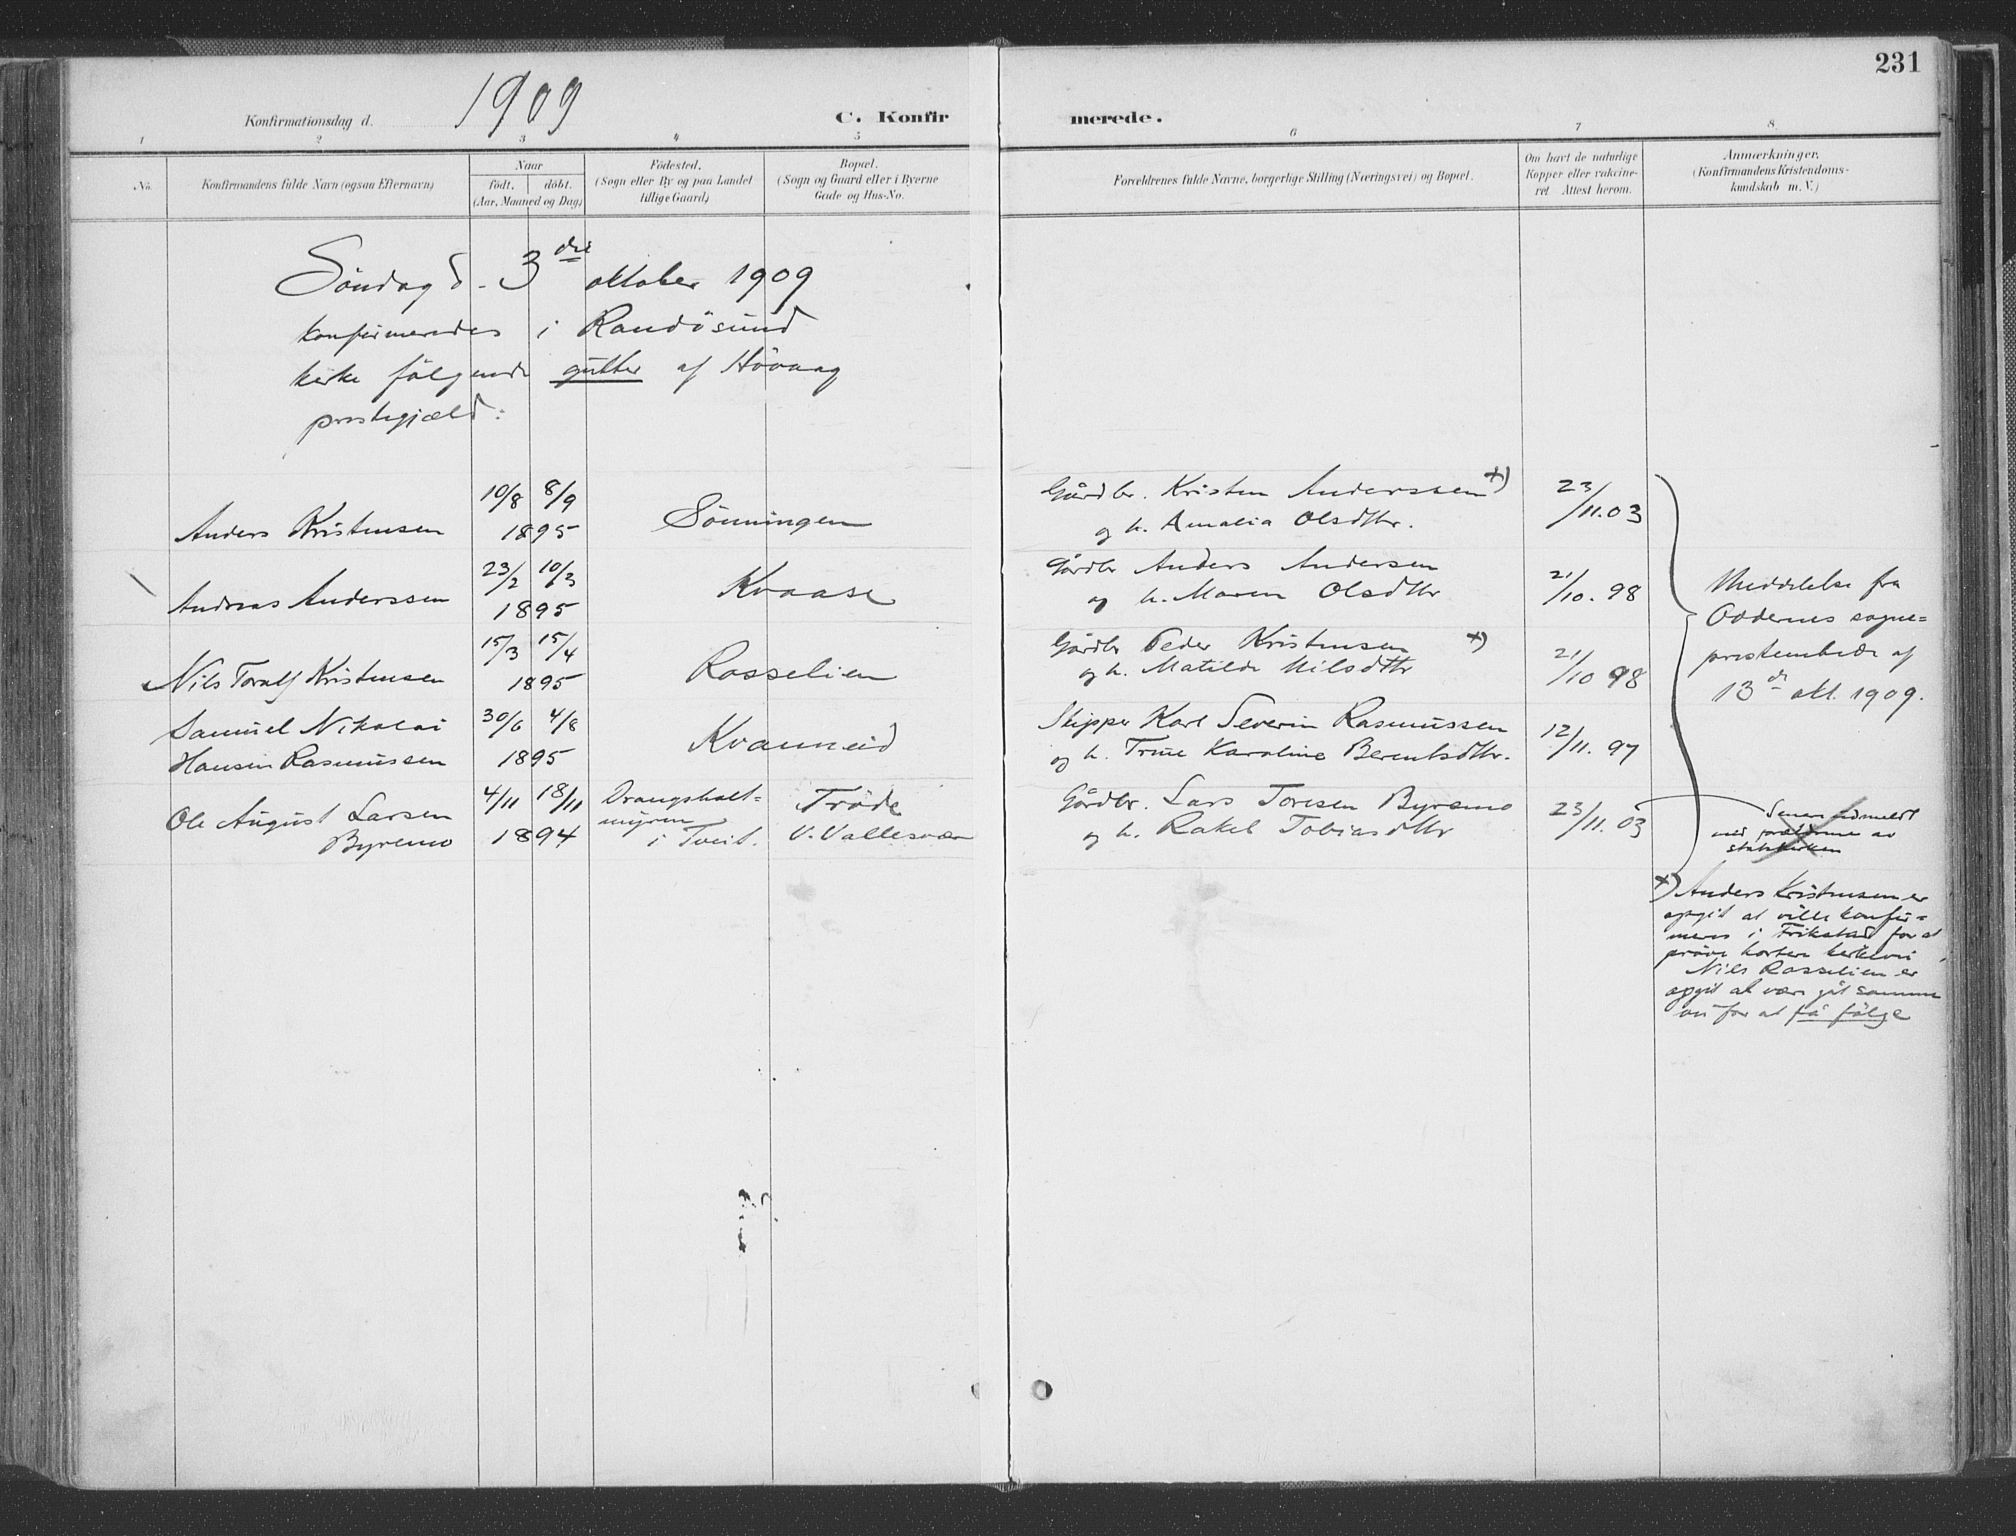 231
1909
Konfirmationsdag d.
C. Konfirmerede.
1 2 3 4 5 6 7 8
No.
Konfirmandens fulde Navn (ogsaa Efternavn)
Naar
födt. döbt.
(Aar, Maaned og Dag)
Födested.
(Sogn eller By og paa Landet
tillige Gaard)
Bopæl.
(Sogn og Gaard eller i Byerne
Gade og Hus-No.
Forældrenes fulde Navne, borgerlige Stilling (Næringsvei) og Bopæl.
Om havt de naturlige
Kopper eller vakcineret
Attest herom.
Anmærkninger.
(Konfirmandens Kristendomskundskab
m. V.)
Söndag d. 3die oktober 1909
konfirmeredes i Randösund
kirke fölgende gutter af Hövaag
prestegjæld:
Anders Kristensen
10/8 8/9
1895
Sönningen
Gårdbr. Kristen Anderssen x)
og h. Amalia Olsdttr.
23/11.03
Andreas Anderssen
23/2 10/3
1895
Kvaase
Gårdbr Anders Andersen
og h. Maren Olsdttr
21/10.98
Nils Toralf Kristensen
15/3 15/4
1895
Rosselien
Gårdbr Peder Kristensen x)
og h. Matilde Nilsdttr
21/10 98
Samuel Nikolai
Hansen Rasmussen
30/6 4/8
1895
Kvanneid
Skipper Karl Severin Rasmussen
og h. Trine Karoline Berentsdttr.
12/11.97
Ole August Larsen
Byremo
4/11 18/11
1894
Drangsholtmyren
i Tveit.
Tröde
V. Vallesvær
Gårdbr. Lars Toresen Byremo
og h. Rakel Tobiasdttr
23/11.03
Meddelelse fra
Oddernes sogne=
prestembede af
13de okt. 1909.
Senere udmeldt
med forældrene av
statskirken
x) Anders Kristensen er
opgit at ville konfir=
meres i Frikstad for at
pröve kortere kirkevei
Nils Rosselien er
opgit at være gåt samme
vei for at få fölge